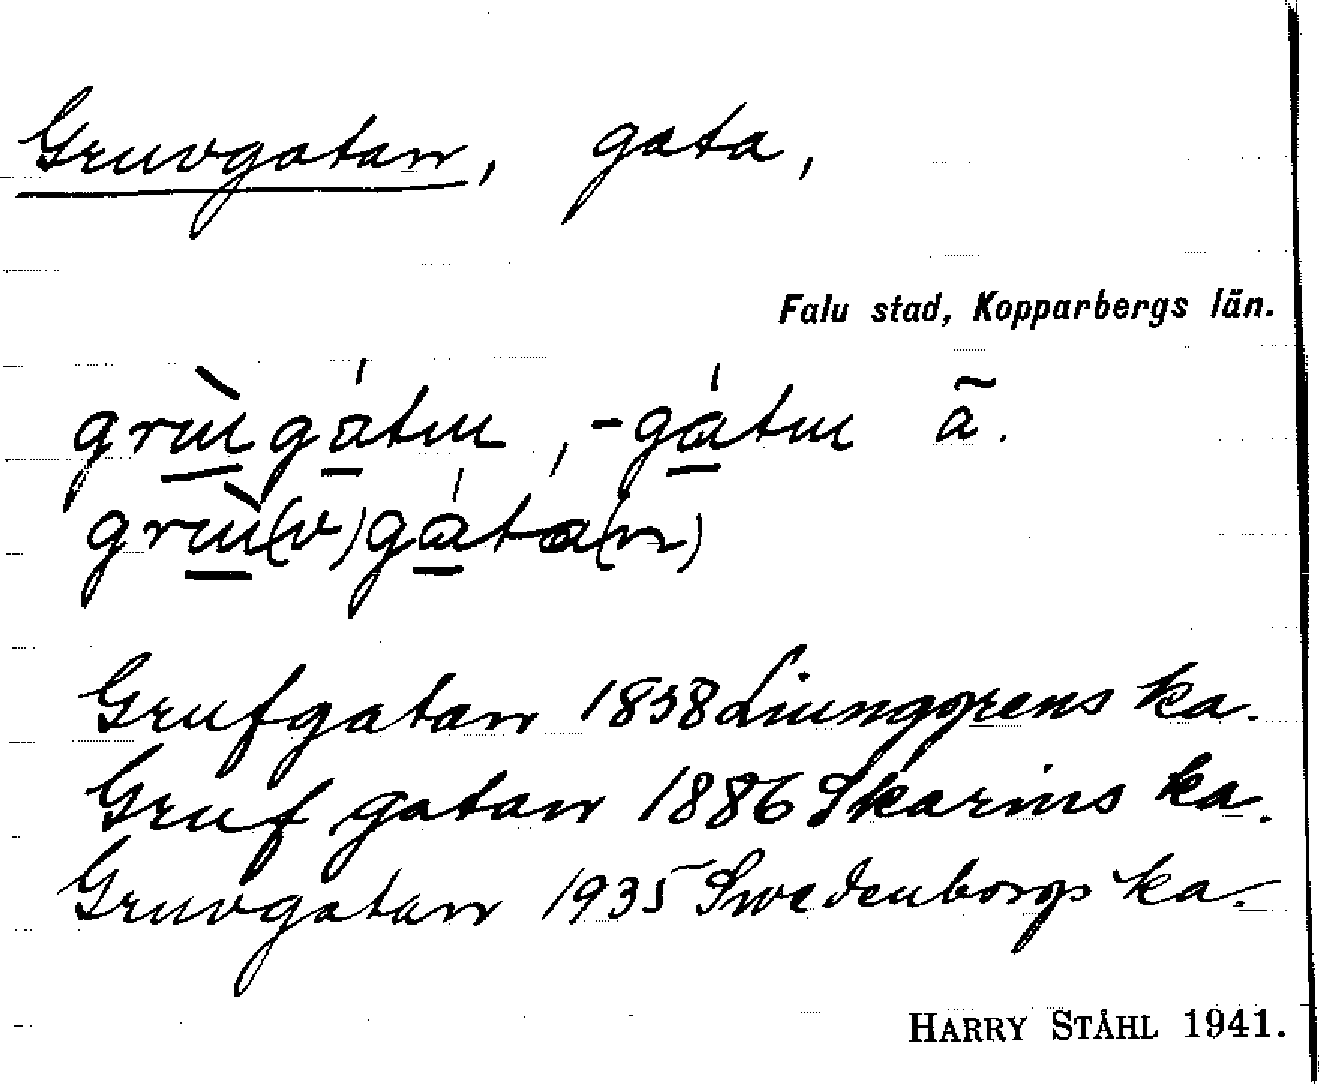 Gruvgatan, gata,
Falu stad, Kopparbergs län.
grùgátu, -gátu ã.
grù(v)gáta(n)
Grufgatan 1858 Liunggrens ka.
Grufgatan 1886 Skarins ka.
Gruvgatan 1935 Swedenborgs ka.
HARRY STÅHL 1941.